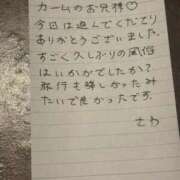 カームのお兄様♡
今日は遊んでくださり
ありがとうございました。
すごく久しぶりの風俗
はいかがでしたか?
旅行も楽しかったみ
たいで良かったです。
さわ